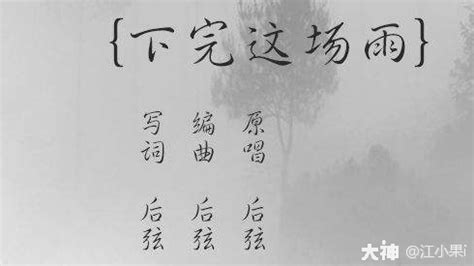 {下完这场雨}
原唱 后弦
编曲 后弦
写词 后弦
大神 @江小果i